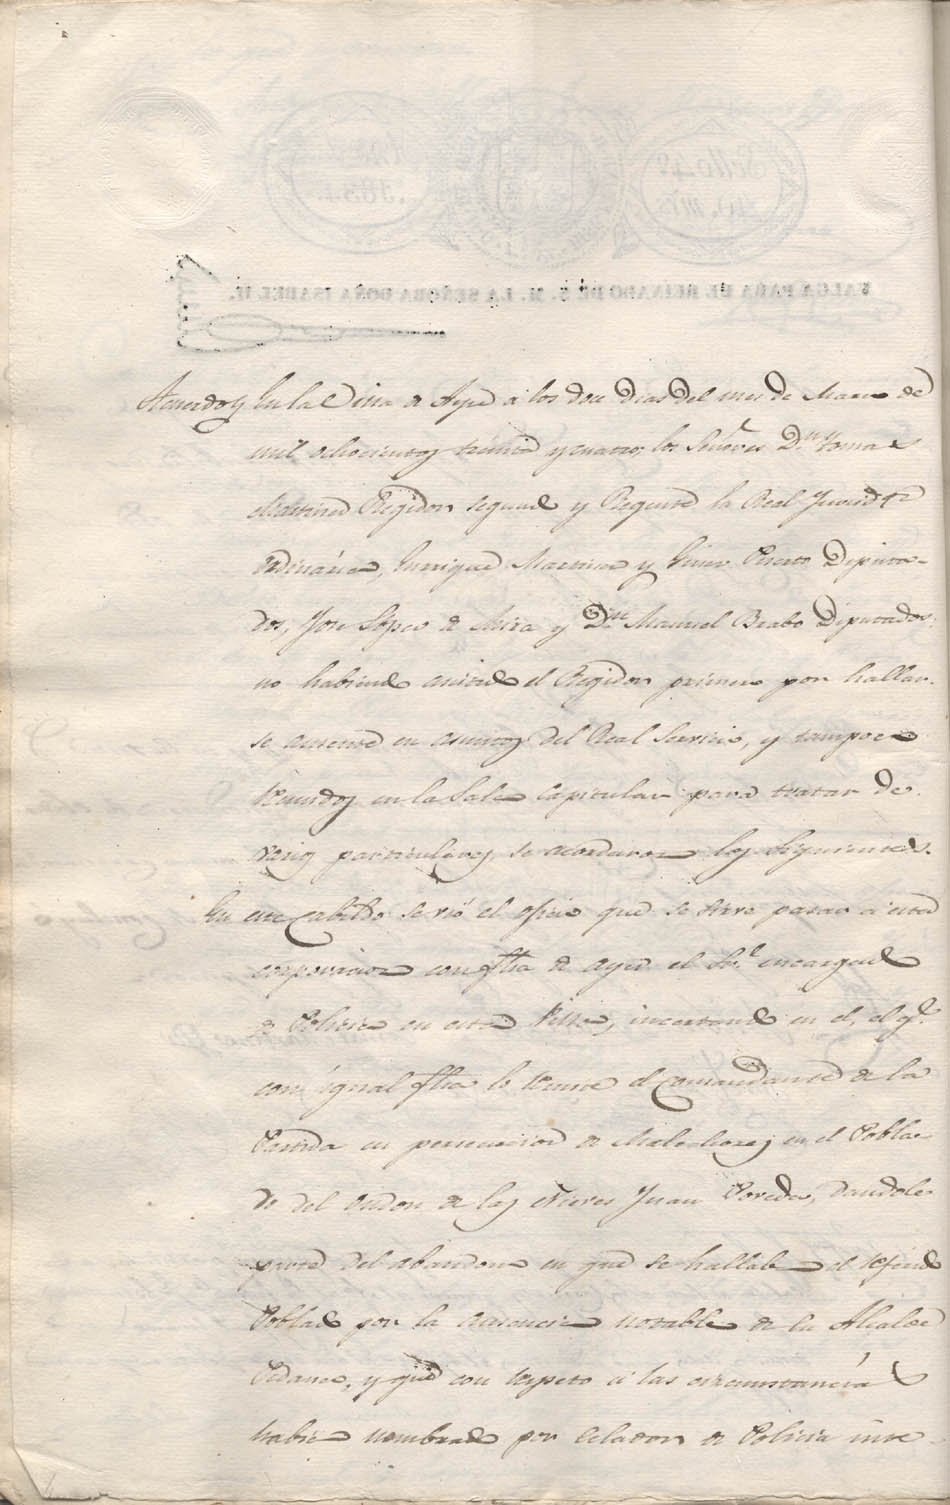 Acuerdo / En la Villa de Aspe a los doce dias del mes de Marzo de
mil ochocientos treinta y cuatro, los Señores Dn. Tomas
Martinez Regidor segundo y Regente la Real Jurisdn.
ordinária, Enrique Martinez y Giner Puerto Diputa-
dos, Jose Lopez de Mira y Dn. Manuel Brabo Diputados:
no habiendo asistido el Regidor primero por hallar-
se ausente en asuntos del Real Servicio, y tampoco
reunidos en la Sala Capitular para tratar de
varios particulares, se acordaron los siguientes.
En este Cabildo se vió el oficio que se sirve pasar a esta
corporacion con fha de ayer el Sor. encargado
de Policia en esta Villa, incertando en el, el qe.
con igual fha le remite el Comandante de la
Partida en persecucion de Malechores en el Pobla-
do del Ondon de las Nieves Juan Poveda, dandole
parte del abandono en que se hallaba el referido
Poblado por la ausencia notable de su Alcalde
Pedaneo, y que con respeto a las circunstancias
habia nombrado por Celador de Policia inte-